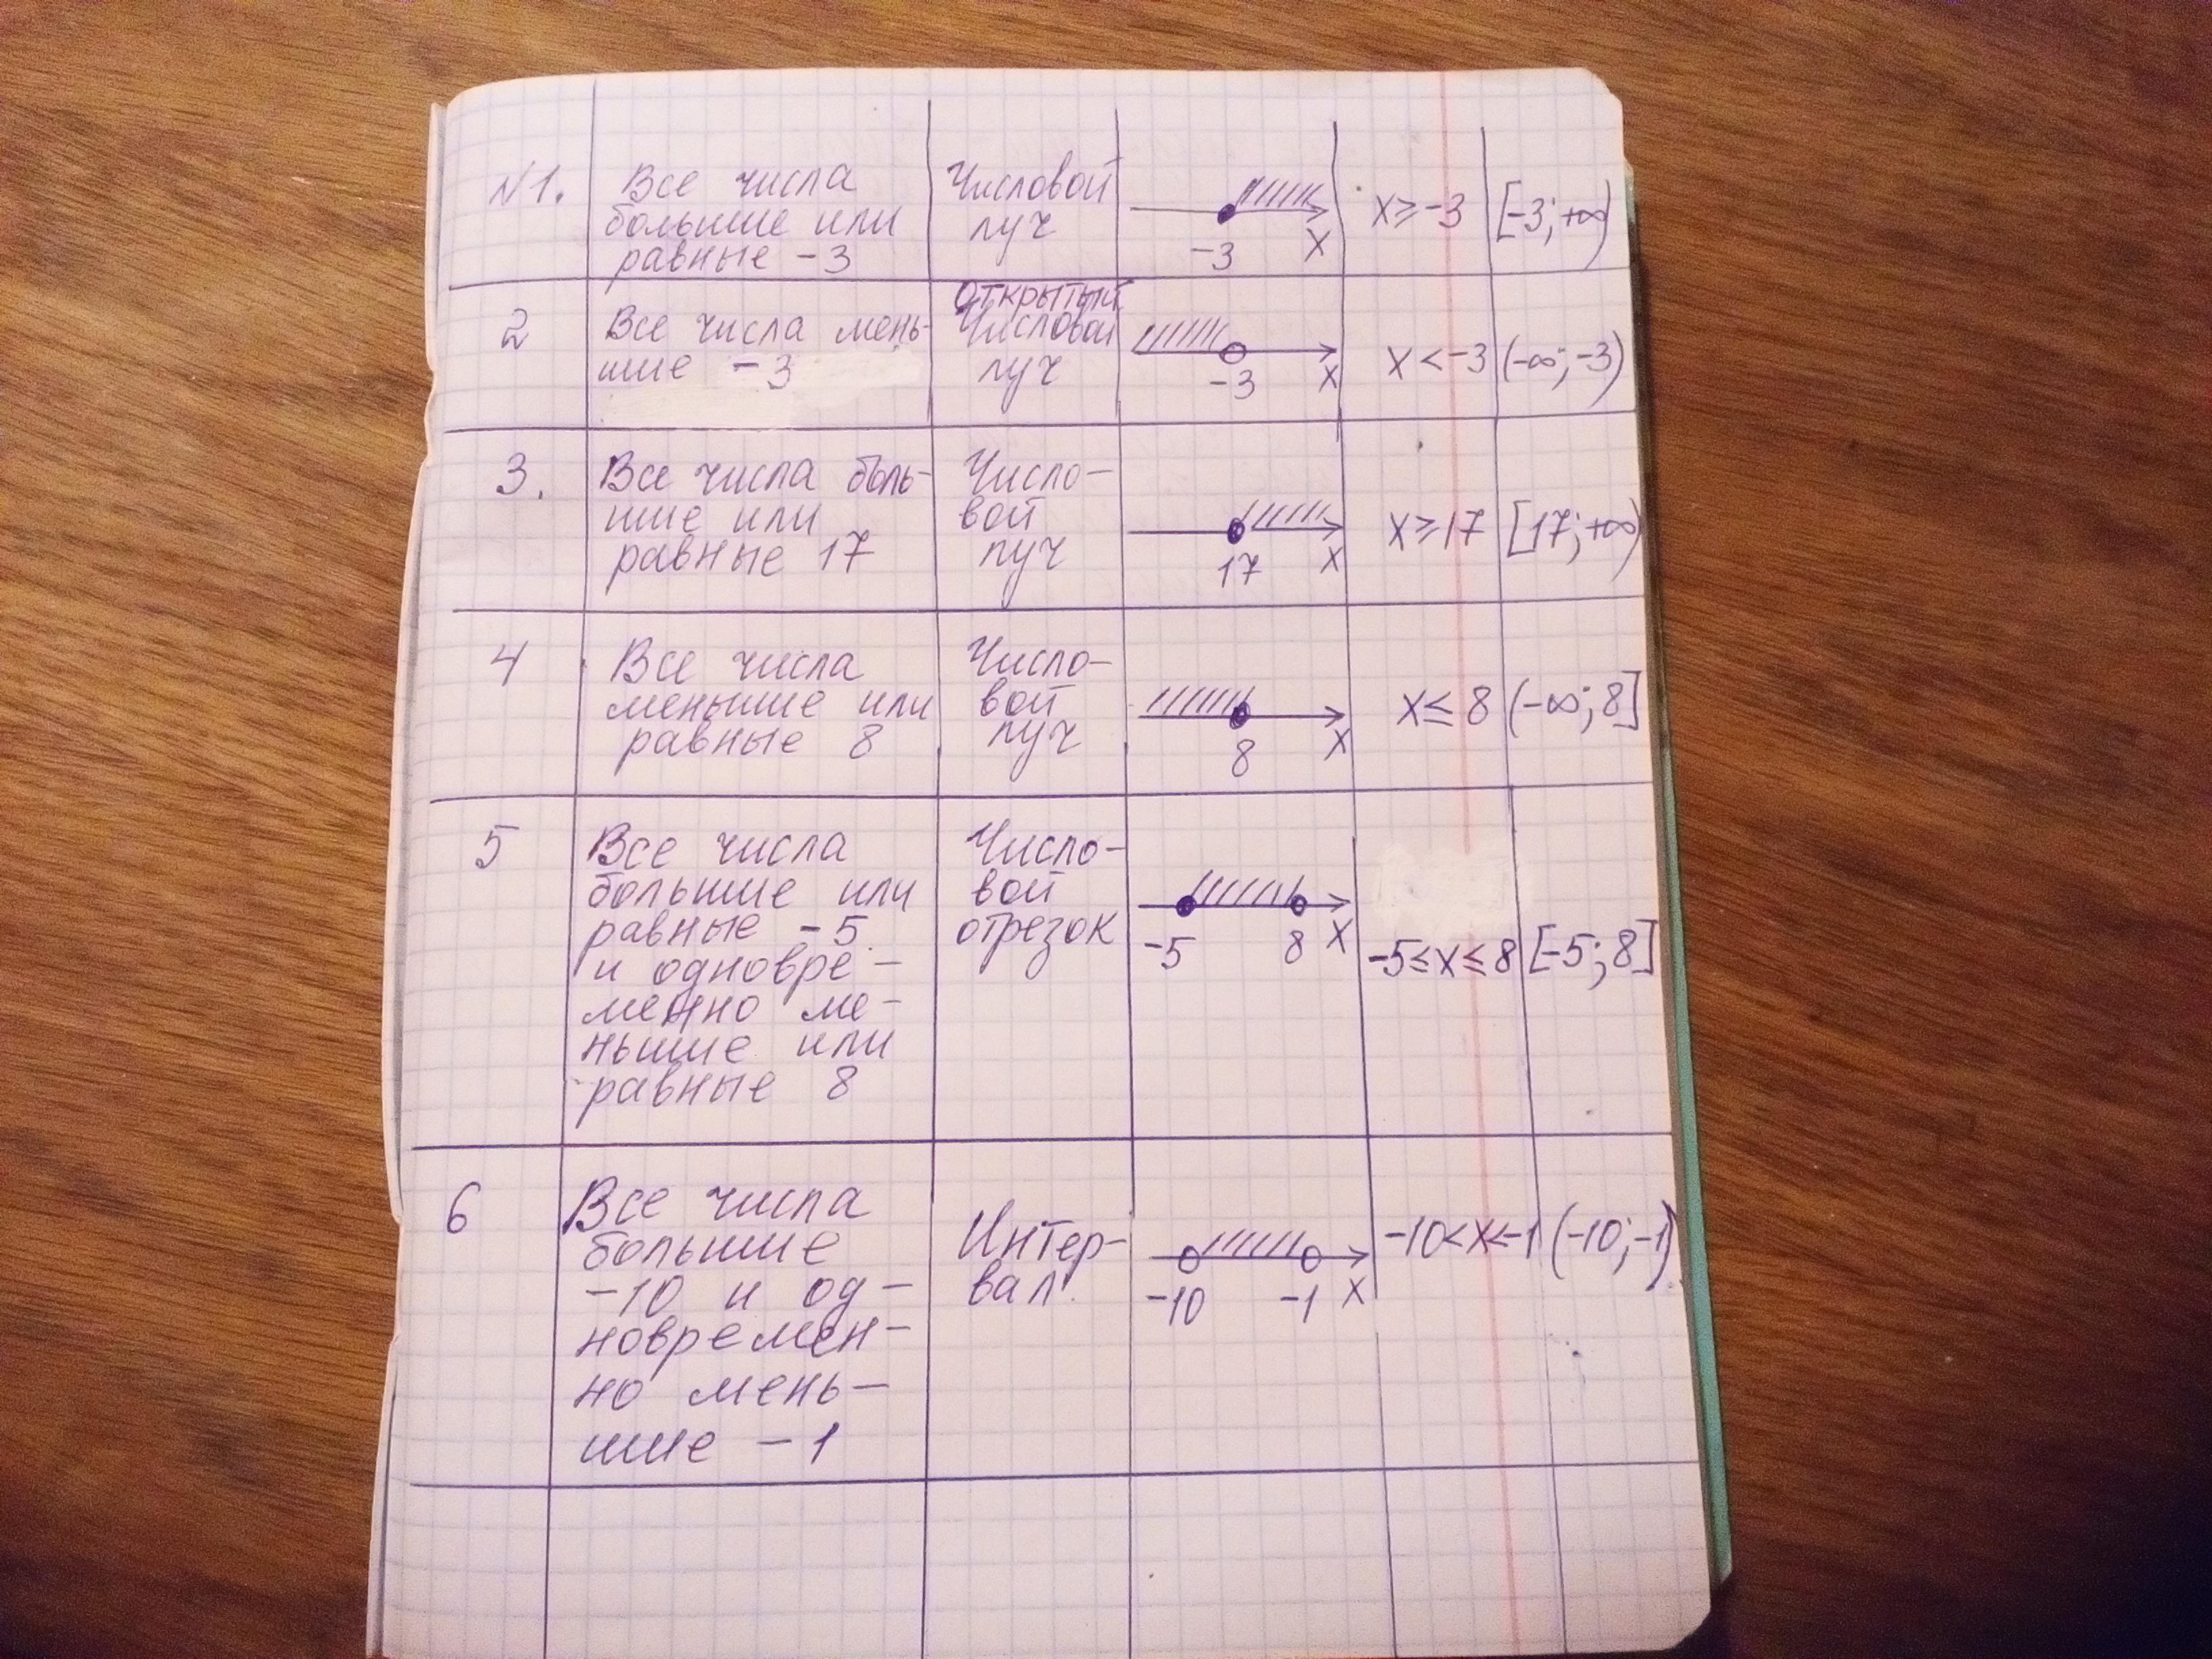 N1.
Все числа
большие или
равные -3
Числовой
луч
-3
x
x≥-3
[-3;+∞)
2
Все числа мень-
шие -3
Открытый
числовой
луч
-3
x
x<-3
(-∞;-3)
3.
Все числа боль-
шие или
равные 17
Число-
вой
луч
17
x
x≥17
[17;+∞)
4
Все числа
меньшие или
равные 8
Число-
вой
луч
8
x
x≤8
(-∞;8]
5
Все числа
большие или
равные -5
и одновре-
менно ме-
ньшие или
равные 8
Число-
вой
отрезок
-5
8
x
-5≤x≤8
[-5;8]
6
Все числа
большие
-10 и од-
новремен-
но мень-
шие -1
Интер-
вал.
-10
-1
x
-10<x<-1
(-10;-1)